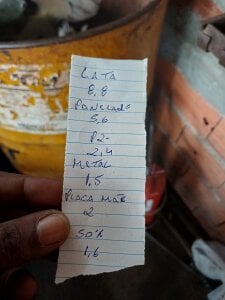 LATA
8,8
PANELADO
5,6
P2-
2,4
METAL
1,5
PLACA MÃE
2
50%
1,6